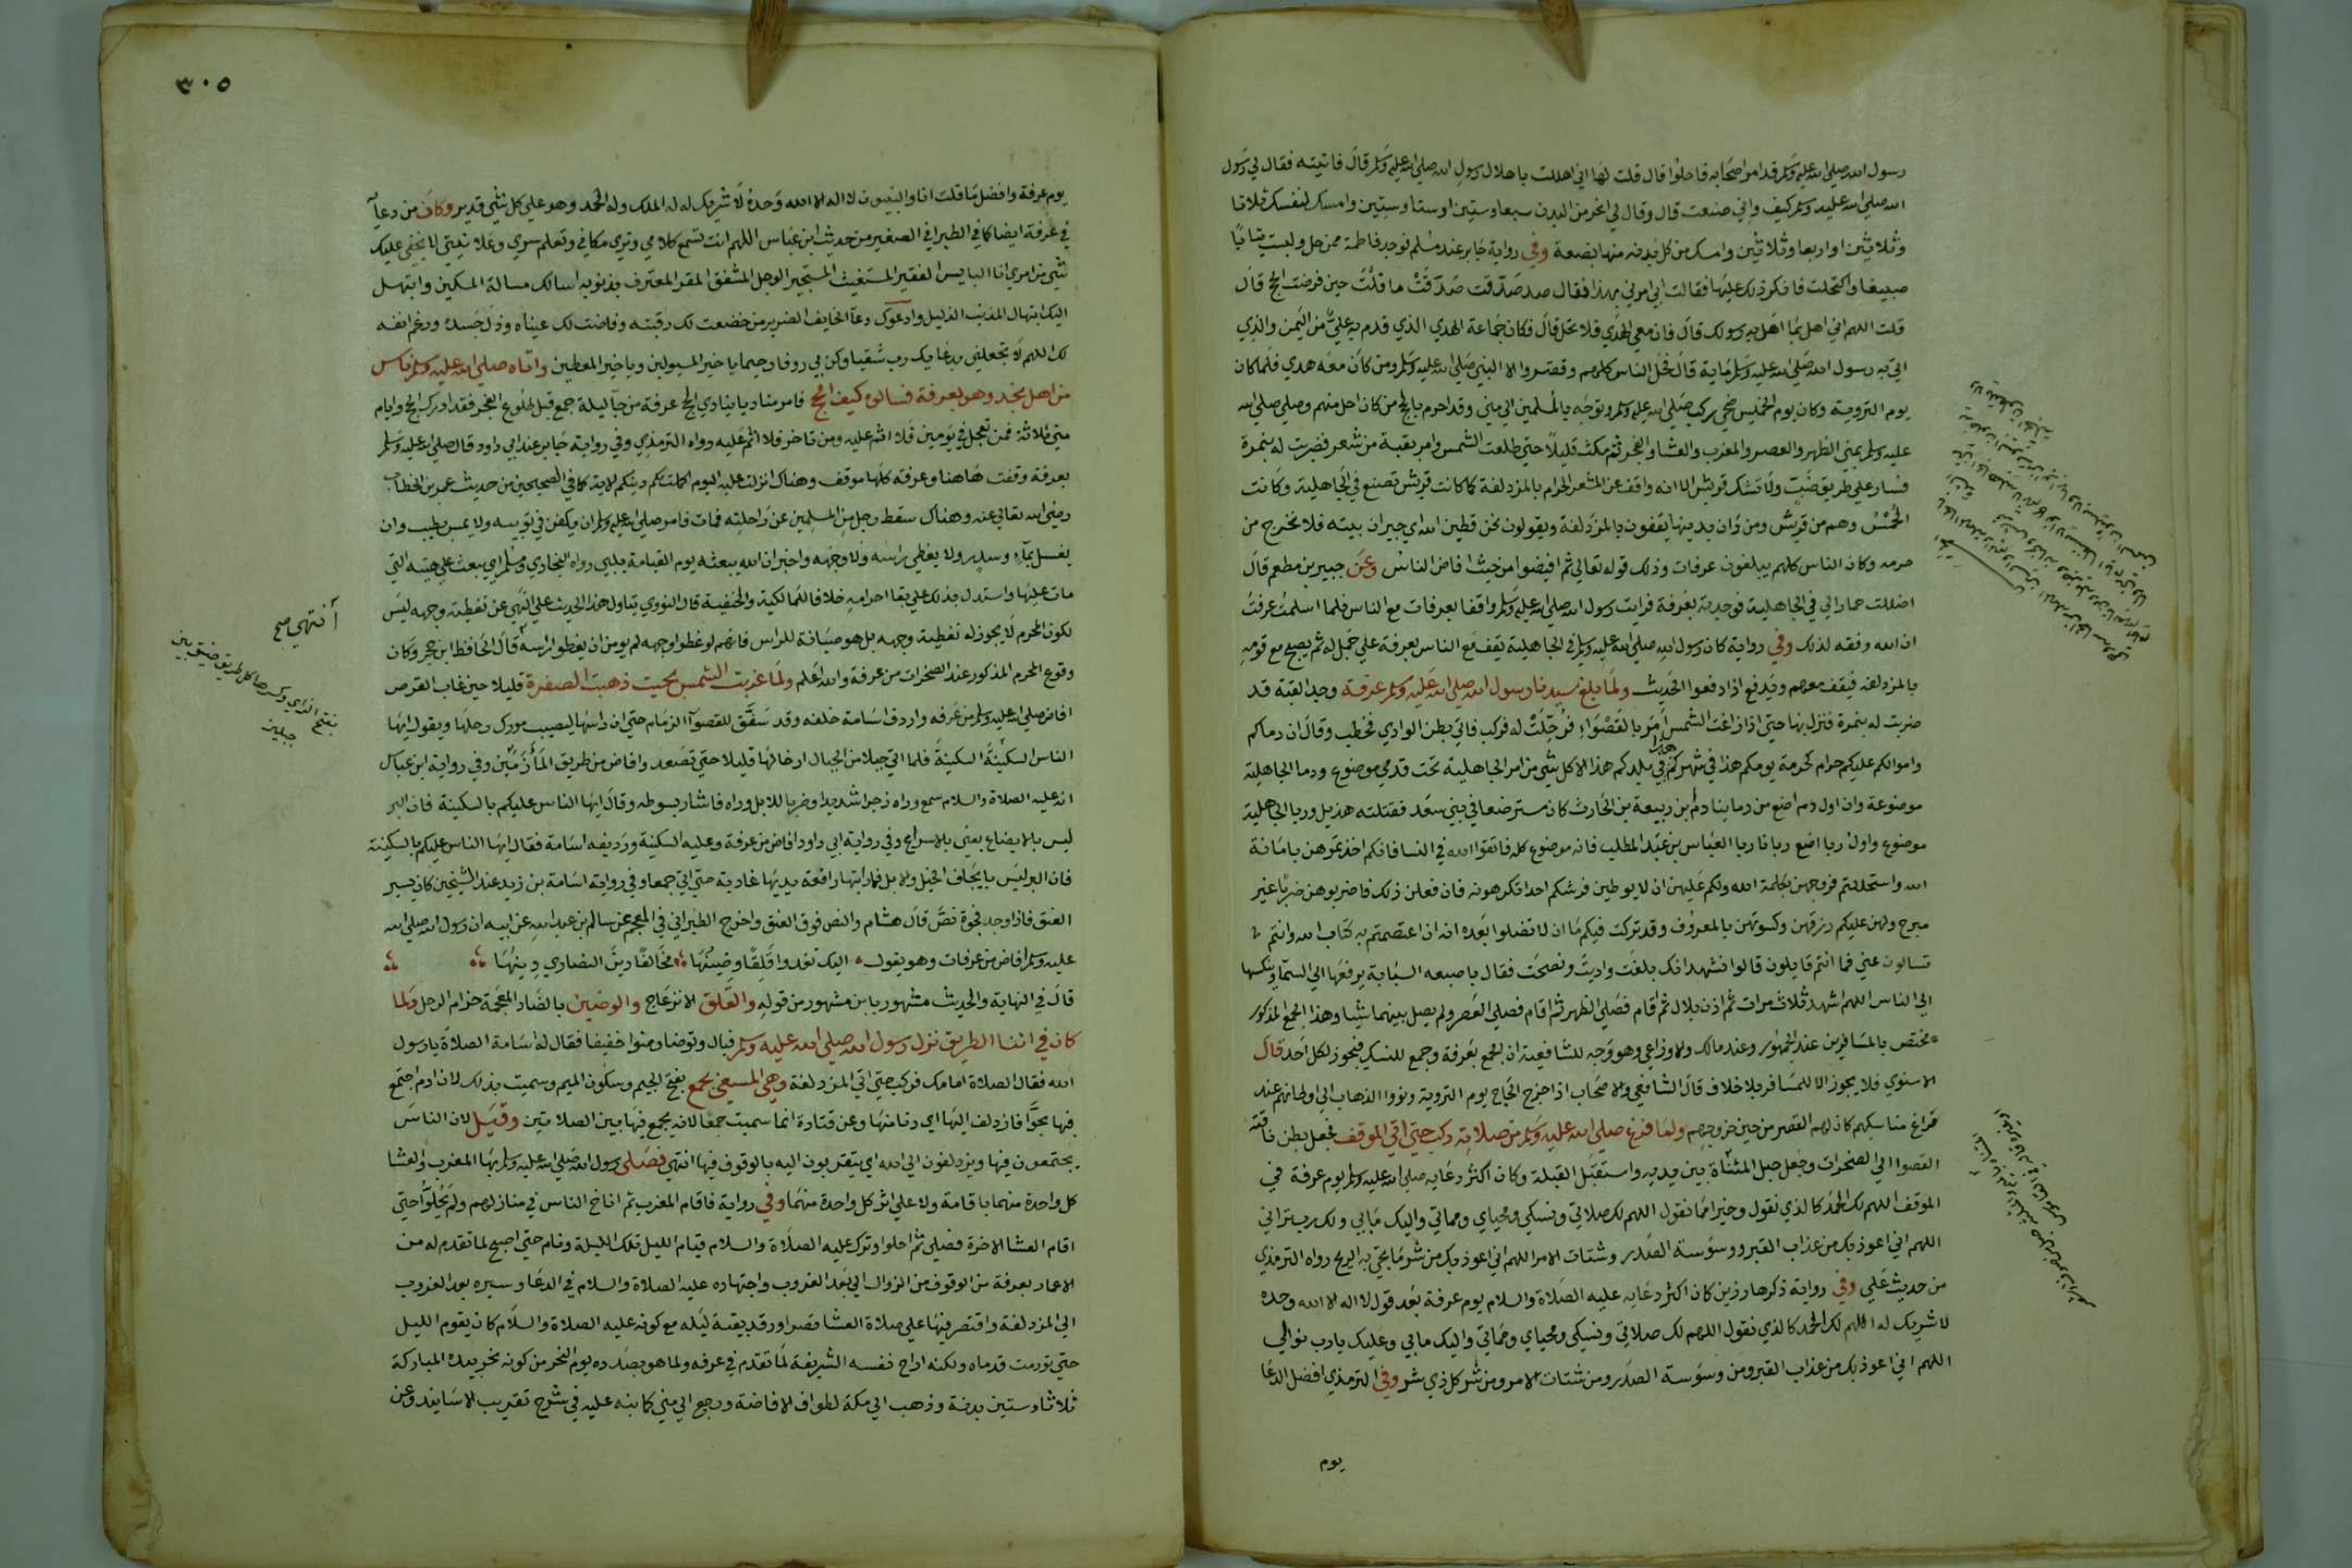 رسول الله صلى الله عليه وسلم قد امر اصحابه فاحلوا قال قلت لها اني اهللت باهلال رسول الله صلى الله عليه وسلم قال فاتيته فقال لي رسول
الله صلى الله عليه وسلم كيف صنعت قال وقال لي انحر من البدن سبعا وستين او ستا وستين وامسك لنفسك ثلاثا
وثلاثين او اربعا وثلاثين وامسك من كل بدنه منها بضعة وفي رواية جابر عند مسلم فوجد فاطمة ممن حل ولبست ثيابا
صبيغا واكتحلت فانكر ذلك عليها فقالت ابي امرني بهذا فقال صدقت صدقت ما قلت حين فرضت الحج قال
قلت اللهم اني اهل بما اهل به رسولك قال فان معي الهدي فلا تحل قال فكان جماعة الهدي الذي قدم به علي من اليمن والذي
اتى به رسول الله صلى الله عليه وسلم ماية قال فحل الناس كلهم وقصروا الا النبي صلى الله عليه وسلم ومن كان معه هدي فلما كان
يوم التروية وكان يوم الخميس ضحى ركب صلى الله عليه وسلم وتوجه بالمسلمين الى منى وقد احرم بالحج من كان احل منهم وصلى صلى الله
عليه وسلم بمنى الظهر والعصر والمغرب والعشا والفجر ثم مكث قليلا حتى طلعت الشمس وامر بقبة من شعر فضربت له بنمرة
فسار على طريق ضب ولا تشك قريش الا انه واقف عند المشعر الحرام بالمزدلفة كما كانت قريش تصنع في الجاهلية وكانت
الحمس وهم من قريش ومن دان بدينها يقفون بالمزدلفة ويقولون نحن قطين الله اي جيران بيته فلا نخرج من
حرمه وكان الناس كلهم يبلغون عرفات وذلك قوله تعالى ثم افيضوا من حيث افاض الناس وعن جبير بن مطعم قال
اضللت حمارا لي في الجاهلية فوجدته بعرفة فرايت رسول الله صلى الله عليه وسلم واقفا بعرفات مع الناس فلما اسلمت عرفت
ان الله وفقه لذلك وفي رواية كان رسول الله صلى الله عليه وسلم في الجاهلية يقف مع الناس بعرفة على جمل له ثم يصبح مع قومه
بالمزدلفه فيقف معهم ويدفع اذا دفعوا الحديث ولما بلغ سيدنا رسول الله صلى الله عليه وسلم عرفة وجد القبة قد
ضربت له بنمرة فنزل بها حتى اذا زاغت الشمس امر بالقصواء فرحلت له فركب فاتى بطن الوادي فخطب وقال ان دماكم
واموالكم عليكم حرام كحرمة يومكم هذا في شهركم هذا في بلدكم هذا الا كل شي من امر الجاهلية تحت قدمي موضوع ودما الجاهلية
موضوعة وان اول دم اضع من دماينا دم بن ربيعة بن الحارث كان مسترضعا في بني سعد فقتلته هذيل وربا الجاهلية
موضوع واول ربا اضع ربانا ربا العباس بن عبد المطلب فانه موضوع كله فاتقوا الله في النسا فانكم اخذتموهن بامانة
الله واستحللتم فروجهن بكلمة الله ولكم عليهن ان لا يوطين فرشكم احدا تكرهونه فان فعلن ذلك فاضربوهن ضربا غير
مبرح ولهن عليكم رزقهن وكسوتهن بالمعروف وقد تركت فيكم ما ان لا تضلوا بعده انه ان اعتصمتم به كتاب الله وانتم
تسالون عني فما انتم قايلون قالوا نشهد انك بلغت واديت ونصحت فقال باصبعه السبابة يرفعها الى السما وينكسها
الى الناس اللهم اشهد ثلاث مرات ثم اذن بلال ثم اقام فصلى الظهر ثم اقام فصلى العصر ولم يصل بينهما شيا وهذا الجمع المذكور
مختص بالمسافرين عند الجمهور وعند مالك والاوزاعي وهو وجه للشافعية ان الجمع بعرفة وجمع للنسك فيجوز لكل احد قال
الاسنوي فلا يجوز الا للمسافر بلا خلاف قال الشافعي والاصحاب اذا خرج الحجاج يوم التروية ونووا الذهاب الى اوطانهم عند
فراغ مناسكهم كان لهم القصر من حين خروجهم ولما فرغ صلى الله عليه وسلم من صلاته ركب حتى اتى الموقف فجعل بطن ناقته
القصوا الى الصخرات وجعل جبل المشاة بين يديه واستقبل القبلة وكان اكثر دعايه صلى الله عليه وسلم يوم عرفة في
الموقف اللهم لك الحمد كالذي نقول وخيرا مما نقول اللهم لك صلاتي ونسكي ومحياي ومماتي واليك مابي ولك رب تراثي
اللهم اني اعوذ بك من عذاب القبر ووسوسة الصدر وشتات الامر اللهم اني اعوذ بك من شر ما تجي به الريح رواه الترمذي
من حديث علي وفي رواية ذكرها رزين كان اكثر دعايه عليه الصلاة والسلام يوم عرفة بعد قول لا اله الا الله وحده
لا شريك له اللهم لك الحمد كالذي نقول اللهم لك صلاتي ونسكي ومحياي ومماتي واليك مابي وعليك يارب ثوابي
اللهم اني اعوذ بك من عذاب القبر ومن وسوسة الصدر ومن شتات الامر ومن شر كل ذي شر وفي الترمذي افضل الدعا
يوم
٣٠٥
يوم عرفة وافضل ما قلت انا والنبيون لا اله الا الله وحده لا شريك له له الملك وله الحمد وهو على كل شي قدير وكان من دعايه
في عرفة ايضا كما في الطبراني الصغير من حديث ابن عباس اللهم انت تسمع كلامي وترى مكاني وتعلم سري وعلانيتي لا يخفى عليك
شي من امري انا البايس الفقير المستغيث المستجير الوجل المشفق المقر المعترف بذنوبه اسالك مسالة المسكين وابتهل
اليك ابتهال المذنب الذليل وادعوك دعا الخايف الضرير من خضعت لك رقبته وفاضت لك عيناه وذل جسده ورغم انفه
لك اللهم لا تجعلني بدعايك رب شقيا وكن بي روفا رحيما يا خير المسولين ويا خير المعطين واتاه صلى الله عليه وسلم ناس
من اهل نجد وهو بعرفة فسالوه كيف الحج فامر مناديا ينادي الحج عرفة من جا ليلة جمع قبل طلوع الفجر فقد ادرك الحج وايام
منى ثلاثة فمن تعجل في يومين فلا اثم عليه ومن تاخر فلا اثم عليه رواه الترمذي وفي رواية جابر عند ابي داود قال صلى الله عليه وسلم
بعرفة وقفت هاهنا وعرفة كلها موقف وهناك انزلت عليه اليوم اكملت لكم دينكم الاية كما في الصحيحين من حديث عمر بن الخطاب
رضي الله تعالى عنه وهناك سقط رجل من المسلمين عن راحلته فمات فامر صلى الله عليه وسلم ان يكفن في ثوبيه ولا يمس بطيب وان
يغسل بماء وسدر ولا يغطي راسه ولا وجهه واخبر ان الله يبعثه يوم القيامة يلبي رواه البخاري ومسلم اي يبعث على هيئته التي
مات عليها واستدل بذلك على بقا احرامه خلافا للمالكية والحنفية قال النووي يتاول هذا الحديث على النهي عن تغطية وجهه ليس
لكون المحرم لا يجوز له تغطية وجهه بل هو صيانة للراس فانهم لو غطوا وجهه لم يومن ان يغطوا راسه قال الحافظ ابن حجر وكان
وقوع المحرم المذكور عند الصخرات من عرفة والله اعلم ولما غربت الشمس بحيث ذهبت الصفرة قليلا حين غاب القرص
افاض صلى الله عليه وسلم من عرفه واردف اسامة خلفه وقد شنق للقصوا الزمام حتى ان راسها ليصيب مورك رحلها ويقول ايها
الناس السكينة السكينة فلما اتى جبلا من الجبال ارخا لها قليلا حتى تصعد وافاض من طريق المازمين وفي رواية ابن عباس
انه عليه الصلاة والسلام سمع وراه زجرا شديدا وضربا للابل وراه فاشار بسوطه وقال ايها الناس عليكم بالسكينة فان البر
ليس بالايضاع يعني بالاسراع وفي رواية ابي داود افاض من عرفة وعليه السكينة ورديفه اسامة فقال ايها الناس عليكم بالسكينة
فان البر ليس بايجاف الخيل والابل فما رايتها رافعة يديها غادية حتى اتى جمعا وفي رواية اسامة بن زيد عند الشيخين كان يسير
العنق فاذا وجد فجوة نص قال هشام والنص فوق العنق واخرج الطبراني في المعجم عن سالم بن عبد الله عن ابيه ان رسول الله صلى الله
عليه وسلم افاض من عرفات وهو يقول اليك تعدوا قلقا وضينها مخالفا دين النصارى دينها
قال في النهاية والحديث مشهور بابن مشهور من قوله والقلق الانزعاج والوضين بالضاد المعجمة حزام الرحل ولما
كان في اثنا الطريق نزل رسول الله صلى الله عليه وسلم فبال وتوضا وضوا خفيفا فقال له اسامة الصلاة يا رسول
الله فقال الصلاة امامك فركب حتى اتى المزدلفة وهي المسمى بجمع بفتح الجيم وسكون الميم وسميت بذلك لان ادم اجتمع
فيها بحوا فازدلف اليها اي دنا منها وعن قتادة انما سميت جمعا لانه يجمع فيها بين الصلاتين وقيل لان الناس
يجتمعون فيها ويزدلفون الى الله اي يتقربون اليه بالوقوف فيها انتهى فصلى رسول الله صلى الله عليه وسلم بها المغرب والعشا
كل واحدة منهما باقامة ولا على اثر كل واحدة منهما وفي رواية فاقام المغرب ثم اناخ الناس في منازلهم ولم يحلوا حتى
اقام العشا الاخرة فصلى ثم احلوا وترك عليه الصلاة والسلام قيام الليل تلك الليلة ونام حتى اصبح لما تقدم له من
الاعمال بعرفة من الوقوف من الزوال الى بعد الغروب واجتهاده عليه الصلاة والسلام في الدعا وسيره بعد الغروب
الى المزدلفة واقتصر فيها على صلاة العشا قصرا ورقد بقية ليله مع كونه عليه الصلاة والسلام كان يقوم الليل
حتى تورمت قدماه ولكنه اراح نفسه الشريفة لما تقدم في عرفه ولما هو بصدده يوم النحر من كونه نحر بيده المباركة
ثلاثا وستين بدنة وذهب الى مكة لطواف الافاضة ورجع الى منى كما نبه عليه في شرح تقريب الاسانيد وعن
انتهى صح
بفتح الزاي وكسرها كل طريق ضيق بين
جبلين